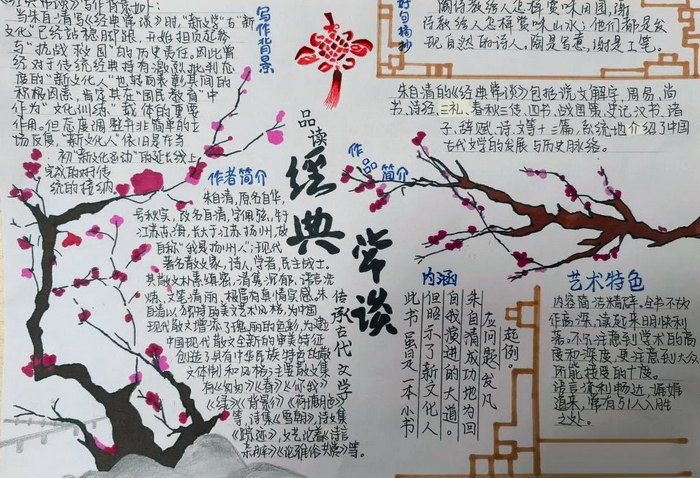 《经典常谈》写作背景如下:
当朱自清写《经典常谈》时,"新文学"与"新
文化"已经站稳脚跟,开始担负起参
与"抗战救国"的历史责任。因此曾
经对于传统经典持有激烈批判态
度的"新文化人"也转而表彰其间的
积极因素,肯定其在"国民教育"中
作为"文化训练"载体的重要
作用。但态度调整并非简单的立
场反复,"新文化人"依旧是在当
初"新文化运动"的延长线上
完成的对传
统的接纳
写作背景
好句摘抄
陶诗教给人怎样赏味田园,谢
诗教给人怎样赏味山水;他们都是发
现自然的诗人。陶是写意,谢是工笔。
朱自清的《经典常谈》包括说文解字,周易,尚
书,诗经,三礼,春秋三传,四书,战国策,史记汉书,诸
子,辞赋,诗,文等十三篇,系统地介绍了中国
古代文学的发展与历史脉络。
作品简介
品读
经典
常谈
传承古代文学
作者简介
朱自清,原名自华,
号秋实,改名自清,字佩弦,生于
江苏东海,长大于江苏扬州,故
自称"我是扬州人";现代
著名散文家,诗人,学者,民主战士。
其散文朴素缜密,清隽沉郁,语言洗
炼,文笔清丽,极富有真情实感,朱
自清以独特的美文艺术风格,为中国
现代散文增添了瑰丽的色彩,为建
中国现代散文全新的审美特征
创造了具有中华民族特色的散
文体制和风格;主要散文集
有《匆匆》《春》《你我》
《绿》《背影》《荷塘月色》
等,诗集《雪朝》,诗文集
《踪迹》,文艺论著《诗言
志辨》《论雅俗共赏》等。
内涵
起例。
应问题发凡
朱自清成功地为回
自我演进的大道
但昭示了新文化人
此书虽曰是一本小书
艺术特色
内容简洁精碎。全书不故
作高深,读起来明快利
落。不只注意到学术的高
度和深度,更注意到大众
所能接受的十度。
语言流利畅达,娓娓
道来,常有引人入胜
之处。